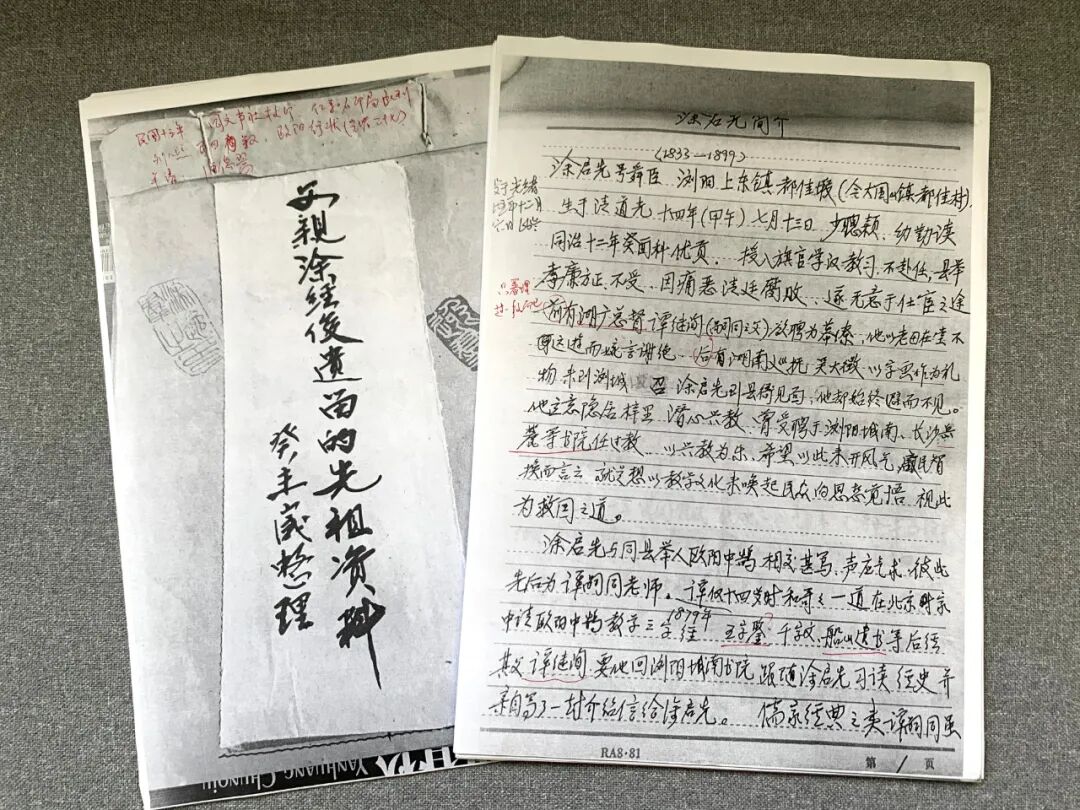 父親涂经俊遺留的先祖資料
癸未歲整理
YANHUANG CHUNQIU
涂启先简介
(1833—1899)
涂启先号舜臣 浏阳上东镇都佳塅(今大围山镇都佳村)
生于清道光 十四年(甲午) 七月十三日 少聪颖、幼勤读
同治十二年癸酉科优贡. 授八旗官学汉教习.不赴任.县举
孝廉方正.不受. 因痛恶清廷腐败. 遂无意于仕宦之途
前有湖广总督谭继洵(嗣同之父)欲聘为幕僚,他以老母在堂不
而婉言谢绝. 后有湖南巡抚 吴大澂 以字画作为礼
物 来到浏城 召 涂启先到县衙见面,他却始终避而不见。
他立意隐居梓里 潜心兴教、曾受聘于浏阳城南、长沙岳
麓等书院任过教、以兴教为乐、希望以此来开风气,启民智
换而言之 就是想以教学文化来唤起民众的思想觉悟.视此
为救国之道。
涂启先与同县举人欧阳中鹄 相交甚笃、声应气求.彼此
先后为谭嗣同老师。谭仅十四岁时和哥哥一道在北京 家
1879年
中请欧阳中鹄教学三字经 五字鉴 千字文.船山遗书等后经
其父谭继洵 要他回浏阳城南书院 跟随涂启先习读经史并
亲自写了一封介绍信给涂启先。 儒家经典之类谭嗣同虽
RA8·81
第 1 页